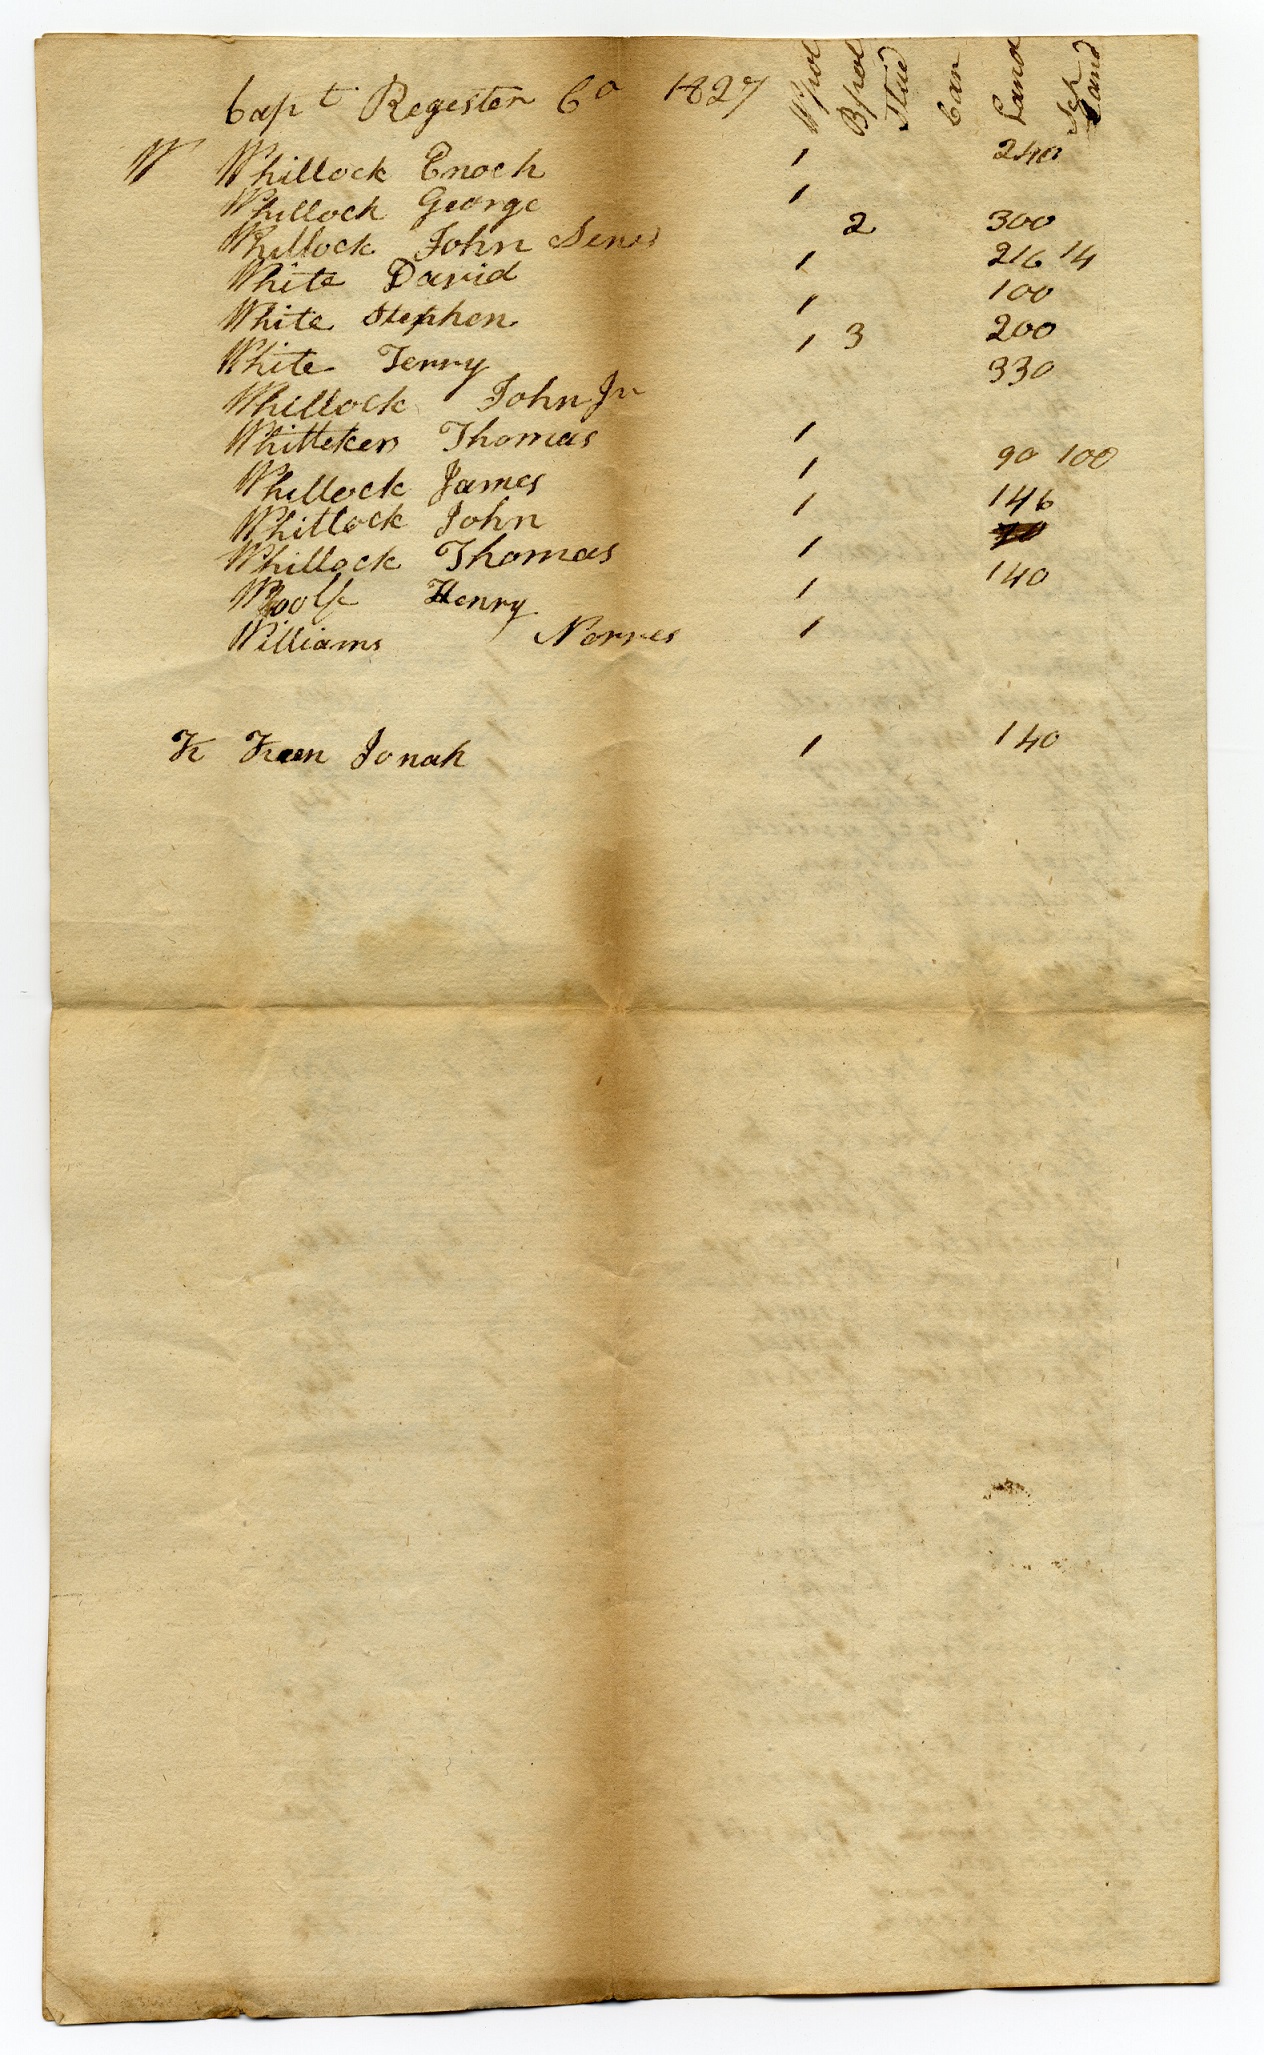 Capt Register Co 1827 Wpol Bpol Stud Car Land Sch Land
W Whillock Enoch 1 240
Whillock George 1
Whillock John Senr 2 300
White David 1 216 14
White Stephen 1 100
White Terry 1 3 200
Whillock John Jr 330
Whitteker Thomas 1
Whillock James 1 90 100
Whitlock John 1 146
Whillock Thomas 1
Woolf Henry 1 140
Williams Norres 1
K Keen Jonah 1 140